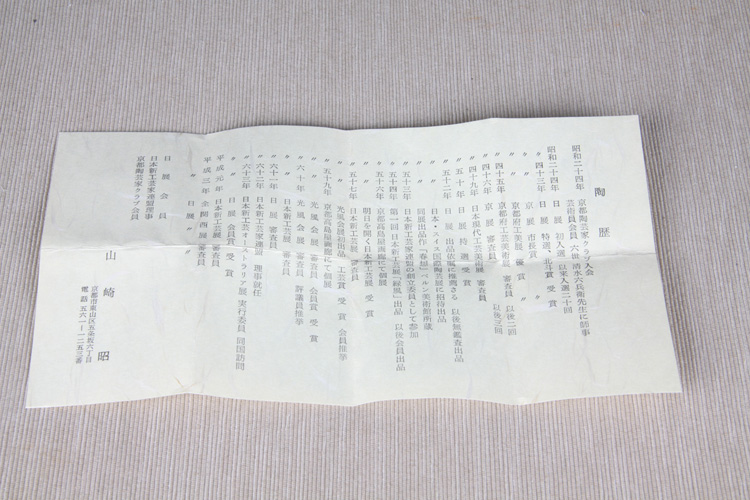 陶歴
昭和二十四年 京都陶芸家クラブ入会
芸術員会員 六世 清水六兵衛先生に師事
昭和二十四年 日展 初入選 以来入選二十回
〃 四十三年 日展 特選、北斗賞 受賞
〃 〃 京展 市長賞 〃
〃 四十五年 京都府工芸美術展 優賞 〃
〃 四十六年 京展 審査員 以後二回
〃 四十九年 日本現代工芸美術展 審査員 以後三回
〃 五十年 日展 特選 受賞
〃 五十二年 日展 出品依嘱に推薦さる 以後無鑑査出品
〃 〃 日本・スイス国際陶芸展に招待出品
〃 〃 同展出品作「春駒」ベルン美術館所蔵
〃 五十三年 日本新工芸家連盟の創立委員として参加
〃 五十四年 第一回日本新工芸展 以後会員出品
〃 五十六年 京都髙島屋画廊にて個展
〃 〃 明日を開く日本新工芸展 受賞
〃 五十七年 日本新工芸展 審査員
〃 〃 光風会展初出品 工芸賞 受賞 会員推挙
〃 五十九年 京都髙島屋画廊にて個展
〃 〃 光風会展 審査員 会員賞 受賞
〃 六十年 光風会展 審査員 評議員推挙
〃 〃 日本新工芸展 審査員
〃 六十一年 日展 審査員
〃 六十二年 日本新工芸家連盟 理事就任
〃 六十三年 日本新工芸オーストラリア展 実行委員 同国訪問
〃 〃 日展 会員賞 受賞
平成元年 日本新工芸展 審査員
平成三年 全関西展 審査員
〃 〃 日展 〃
日展 会員
日本新工芸家連盟理事
京都陶芸家クラブ会員
山崎 昭
京都市東山区五条坂六丁目
電話 五六一ー一二五三番